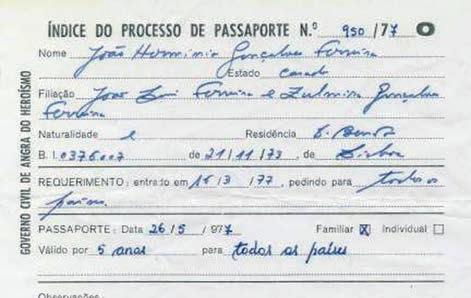 ÍNDICE DO PROCESSO DE PASSAPORTE N.º 950 /77
GOVERNO CIVIL DE ANGRA DO HEROÍSMO
Nome João Hermínio Gonçalves Ferreira
Estado casado
Filiação João Ferreira e Zulmira Gonçalves
Ferreira
Naturalidade e Residência S. Bento
B. I. 0376007 de 21/11/73, de Lisboa
REQUERIMENTO: entrado em /3 / 77, pedindo para todos os
países
PASSAPORTE: Data 26/5 /977 Familiar X Individual
Válido por 5 anos para todos os países
Observações: